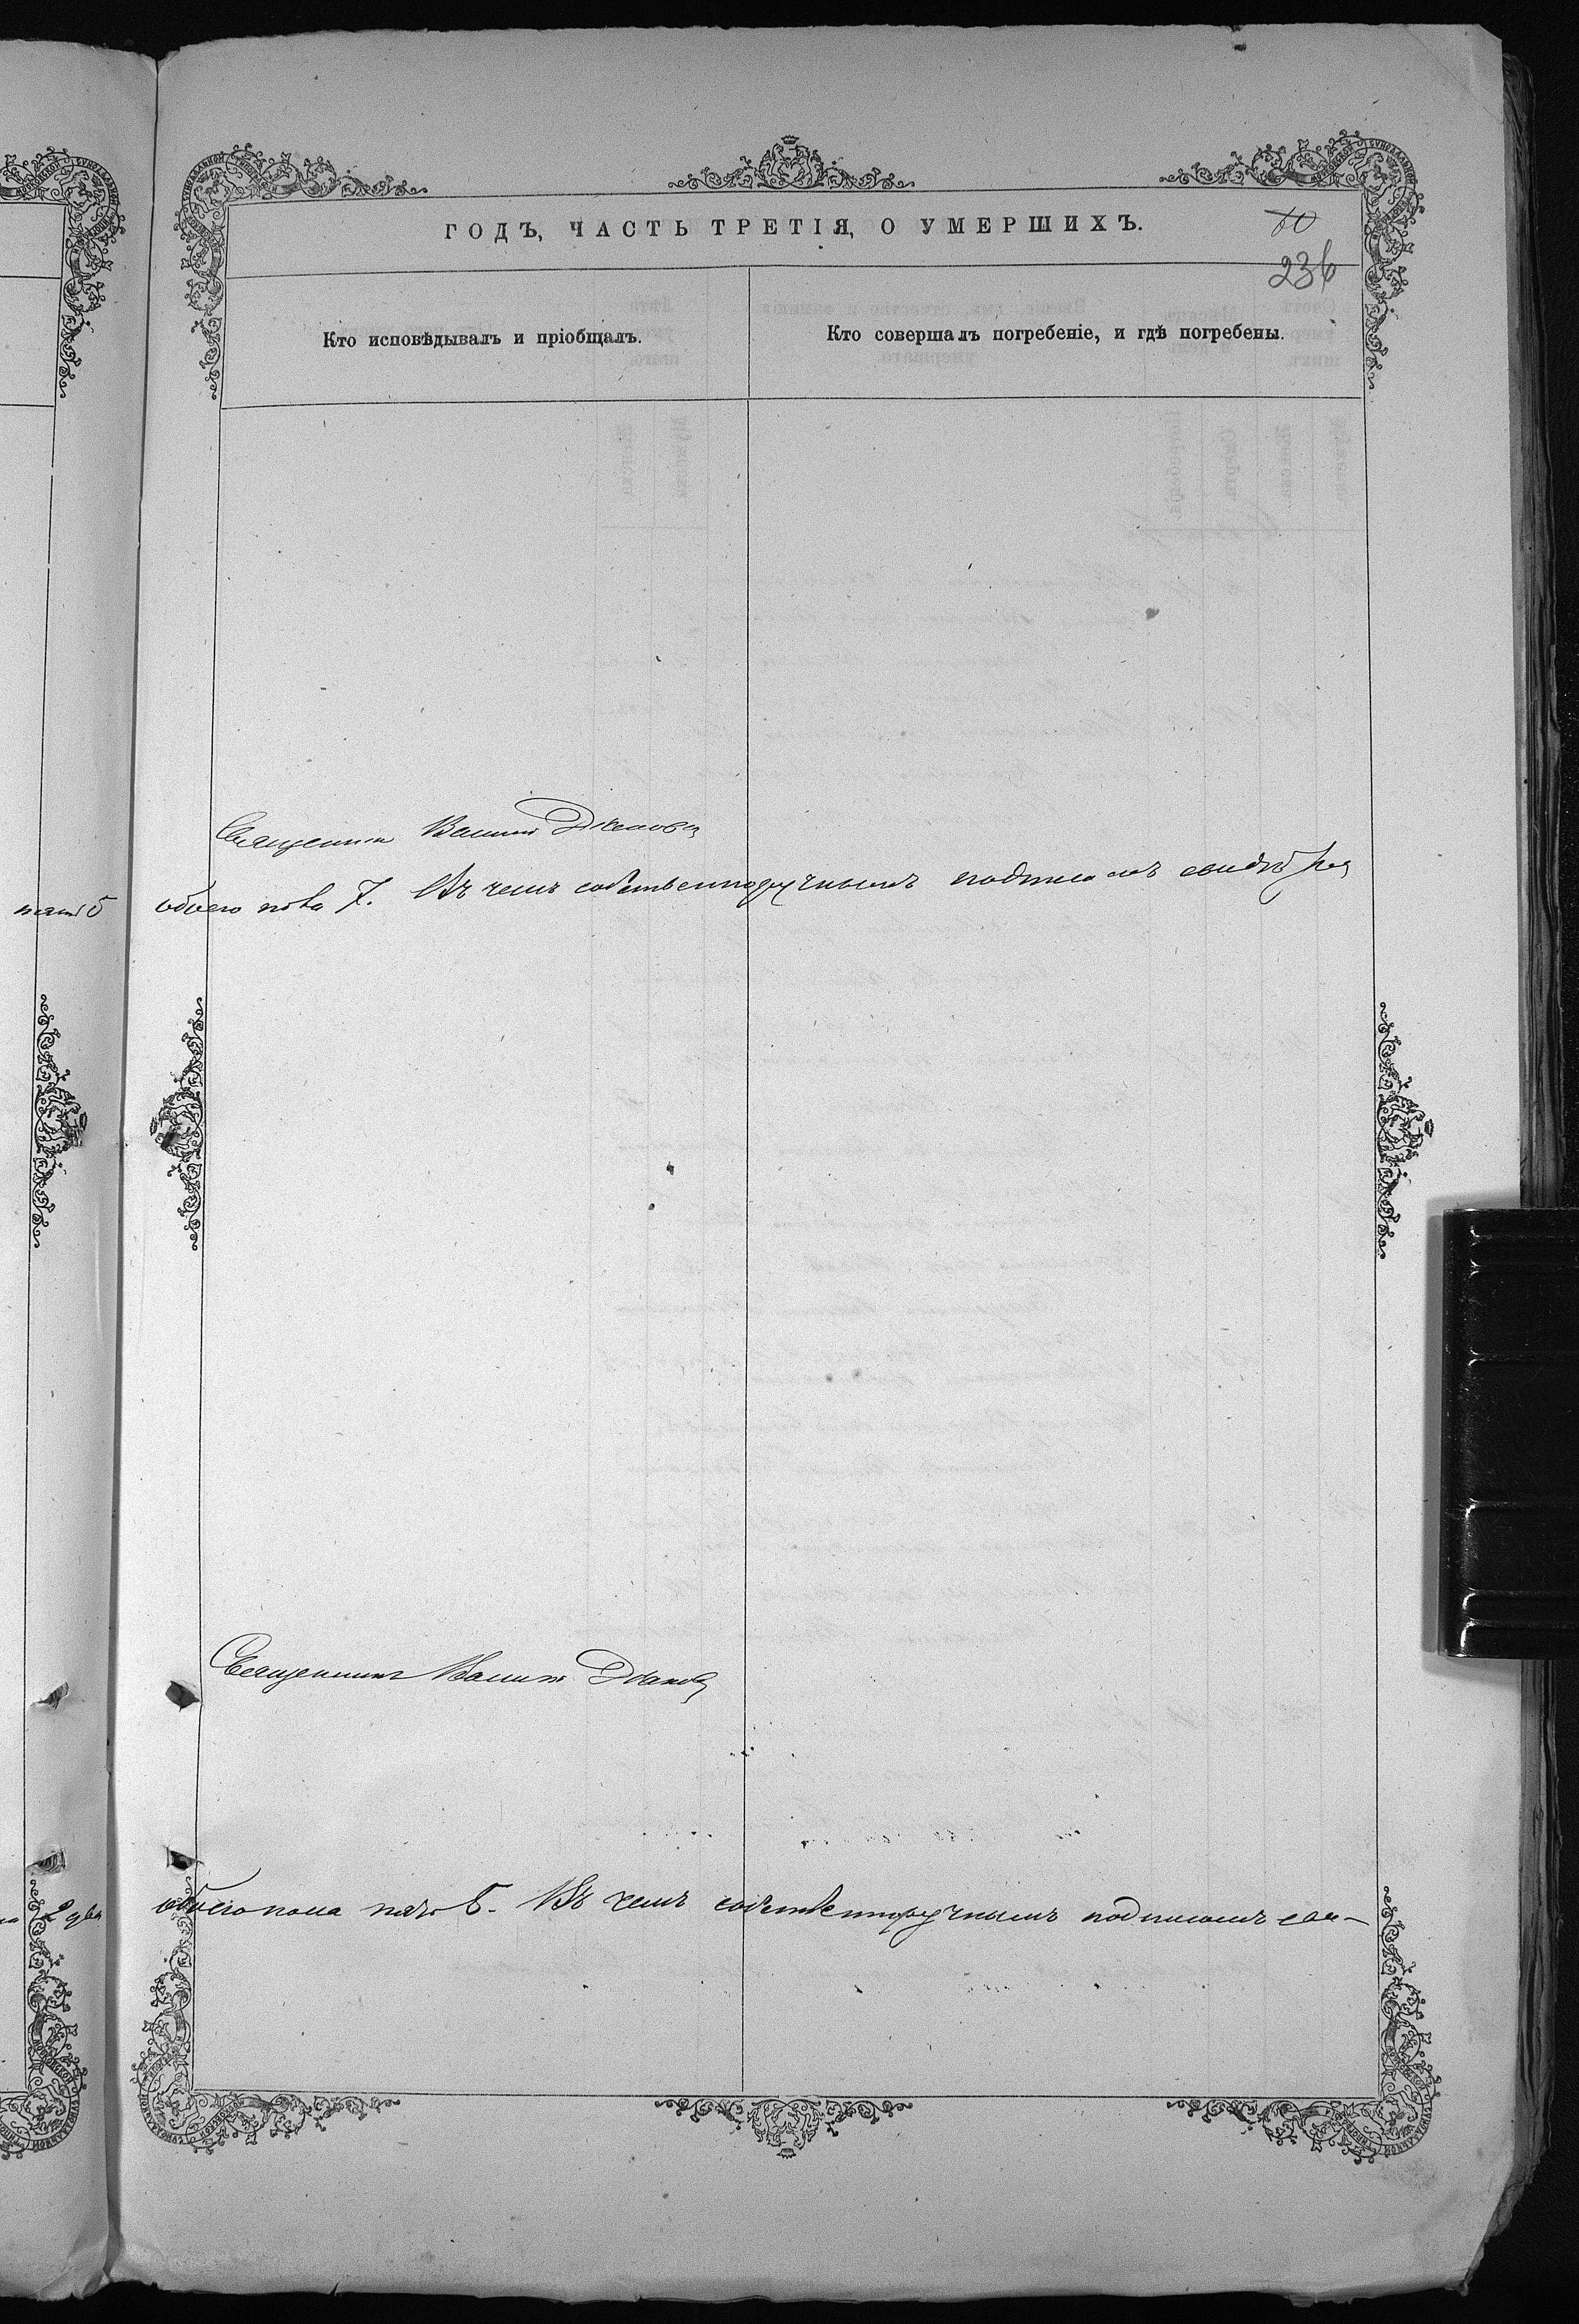 ГОДЪ, ЧАСТЬ ТРЕТІЯ, О УМЕРШИХЪ.
236
Кто исповѣдывалъ и пріобщалъ.
Кто совершалъ погребеніе, и гдѣ погребены.
Священник
обоего пола 7. Въ чемъ собственноручнымъ подписомъ
Священникъ
2 два
обоего пола пять 5. Въ чемъ собственноручнымъ подписомъ сви-